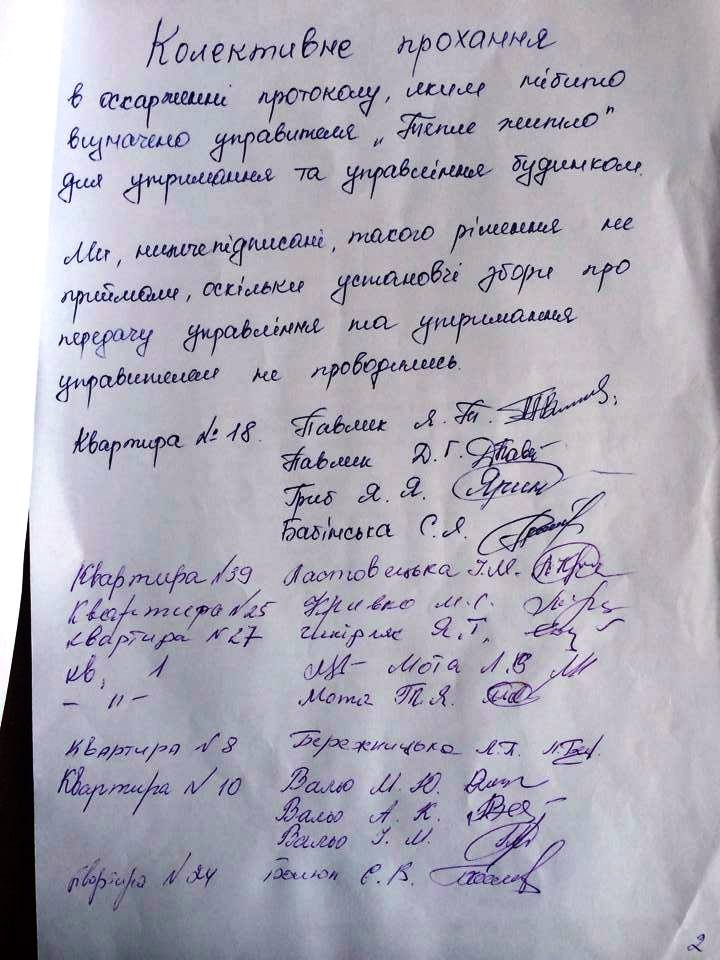 Колективне прохання
в оскарженні протоколу, яким нібито
визначено управителя „Тепле житло"
для утримання та управління будинком.
Ми, нижчепідписані, такого рішення не
приймали, оскільки установчі збори про
передачу управління та утримання
управителем не проводились.
Квартира № 18. Павлик Я. П.
Павлик Д. Г.
Гриб Я. Я.
Бабінська С. Я.
Квартира №39 Ластовецька І.М.
Квартира №25 Кривко М. С.
Квартира №27 Я. Г.
кв. 1 Мота Л.В
– „ – Мота Т.Я.
Квартира №8 Бережницька Л.П.
Квартира № 10 Вальо М. Ю.
Вальо А. К.
Вальо І. М.
Квартира № 24 Є. В.
2